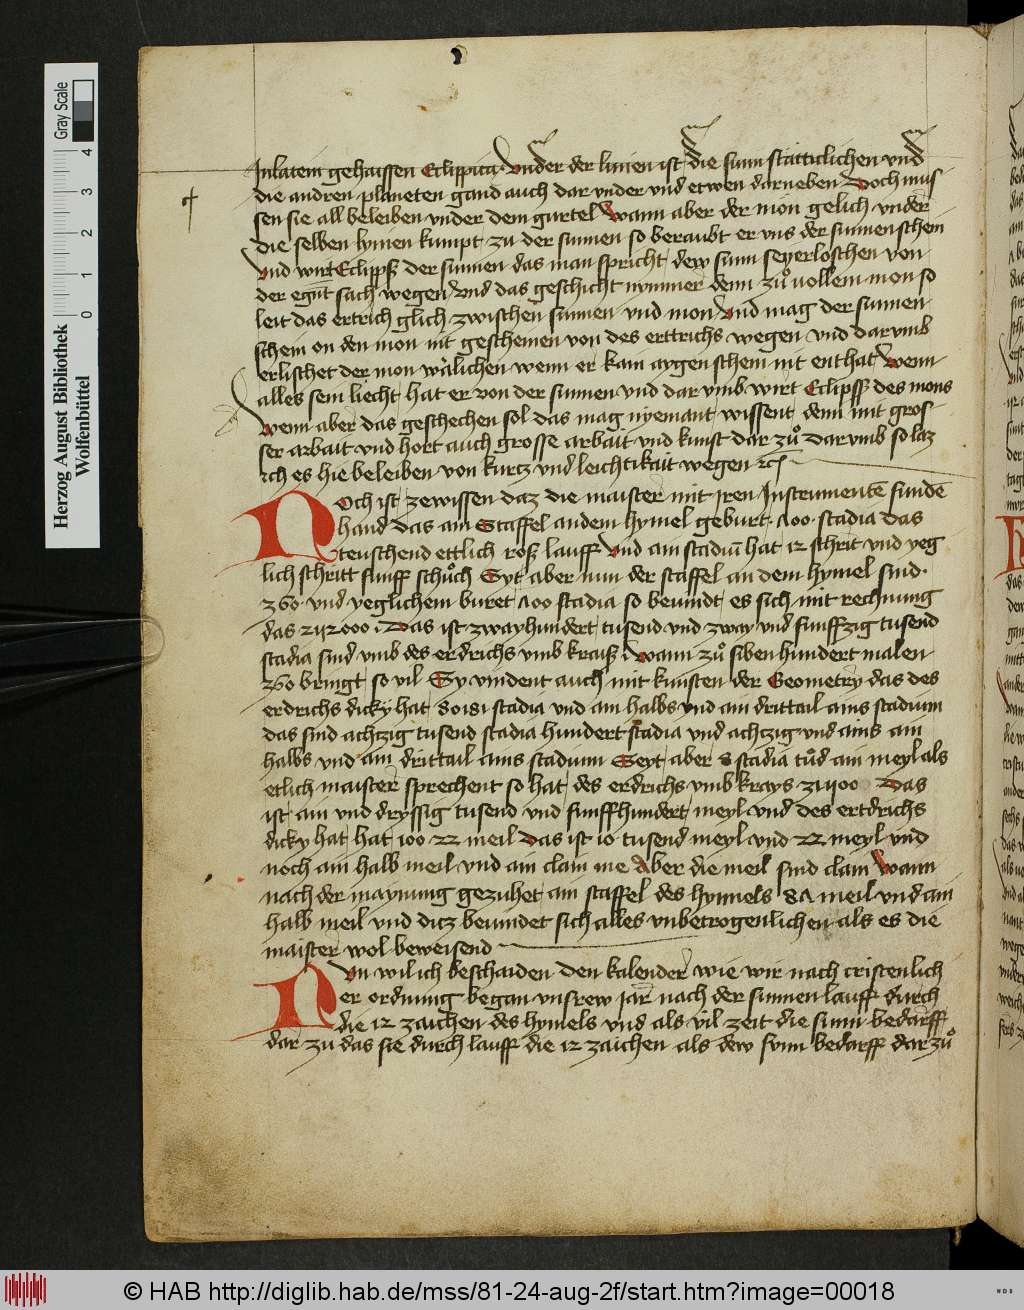 Jnlatein gehaissen Eclippica. Vnder der linien ist die sunn stätticlichen vnd
die andren planeten gand auch dar vnder vnd etwen darneben Doch mus
sen sie all beleiben vnder dem gurtel Wann aber der mon gelich vnder
die selben lynien kumpt zu der sunnen so beraubt er vns der sunnen schein
Vnd wirt Eclipps der sunnen das man spricht dew sunn sey erloschen von
der egnt sach wegen Vnd das geschicht nymmer denn zů vollem mon so
leit das ertrich glich zwischen sunnen vnd mon Vnd mag der sunnen
schein on den mon nit gescheinen von des erttrichs wegen vnd darvmb
erlischet der mon wälichen wenn er kain aygen schein nit enthat Wenn
alles sein liecht hat er von der sunnen vnd dar vmb wirt Eclipps des mons
Wenn aber das geschechen sol das mag nyemant wissent denn mit gros
ser arbait vnd hort auch grosse arbait vnd kunst dar zů Darvmb so laz
ich es hie beleiben von kurcz vnd leichtikait wegen etc
Noch ist zewissen daz die maister mit jren Jnstrumentē fundē
hand das ain Staffel an dem hymel geburt 700 stadia das
teuschend ettlich roß lauff Vnd ain stadiū hat 12 schrit vnd yeg
lich schritt funff schůch Syt aber nun der staffel an dem hymel sind
360 vnd yeglichem buret 700 stadia so beuindt es sich mit rechnung
das 252000. Das ist zwayhundert tusend vnd zway vnd funffzig tusend
stadia sind vmb des erdrichs vmb krais Wann zů siben hundert malen
360 bringt so vil Sy vindent auch mit kunsten der Geometry das des
erdrichs dicky hat 80181 stadia vnd ain halbs vnd ain drittail ains stadium
das sind achczig tusend stadia hundert stadia vnd achczig vnd ains ain
halbs vnd ain drittail ains stadium Seyt aber 8 stadia tůd ain meyl als
etlich maister sprechent so hat des erdrichs vmb krays 31500 Das
ist ain vnd dryssig tusend vnd funffhundert meyl vnd des ertdrichs
dicky hat hat 100 22 meil Das ist 10 tusend meyl vnd 22 meyl vnd
noch ain halb meil vnd ain clain me Aber die meil sind clain Wann
nach der maynung gezuhet ain staffel des hymels 87 meil vnd ain
halb meil vnd dicz beuindet sich alles vnbetrogenlichen als es die
maister wol beweisend
Nvn wil ich beschaiden den kalender wie wir nach cristenlich
er ordnung began vnsrew jar nach der sunnen lauff durch
die 12 zaichen des hymels vnd als vil zeit die sunn bedarff
dar zu das sie durch lauff die 12 zaichen als dew sunn bedarff dar zů
Herzog August Bibliothek
Wolfenbüttel
0 1 2 3 4
Gray Scale
© HAB http://diglib.hab.de/mss/81-24-aug-2f/start.htm?image=00018